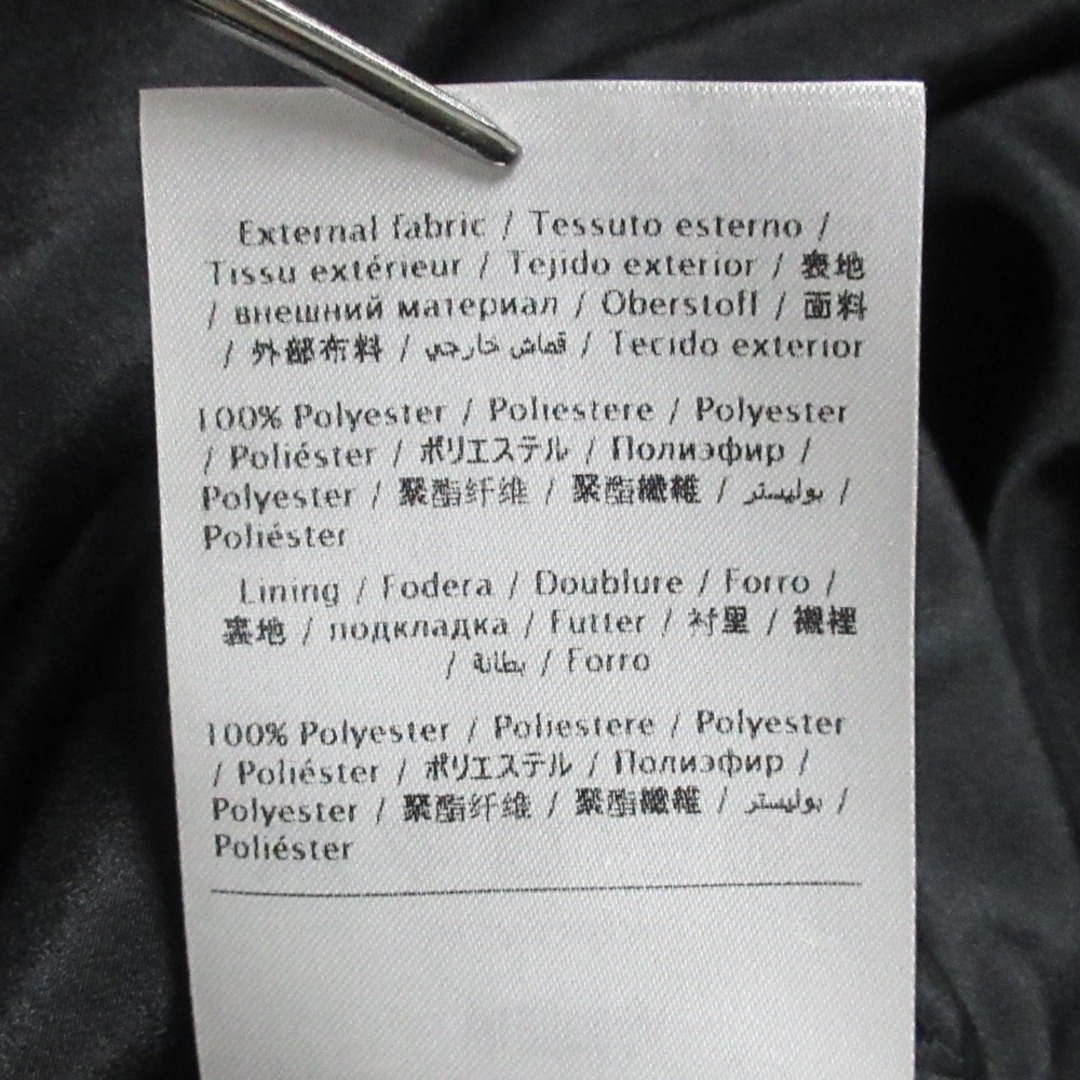 External fabric / Tessuto esterno /
Tissu extérieur / Tejido exterior / 表地
/ внешний материал / Oberstoff / 面料
/ 外部布料 / قماش خارجي / Tecido exterior
100% Polyester / Poliestere / Polyester
/ Poliéster / ポリエステル / Полиэфир /
Polyester / 聚酯纤维 / 聚酯纖維 / بوليستر /
Poliéster
Lining / Fodera / Doublure / Forro /
裏地 / подкладка / Futter / 衬里 / 襯裡
/ بطانة / Forro
100% Polyester / Poliestere / Polyester
/ Poliéster / ポリエステル / Полиэфир /
Polyester / 聚酯纤维 / 聚酯纖維 / بوليستر /
Poliéster